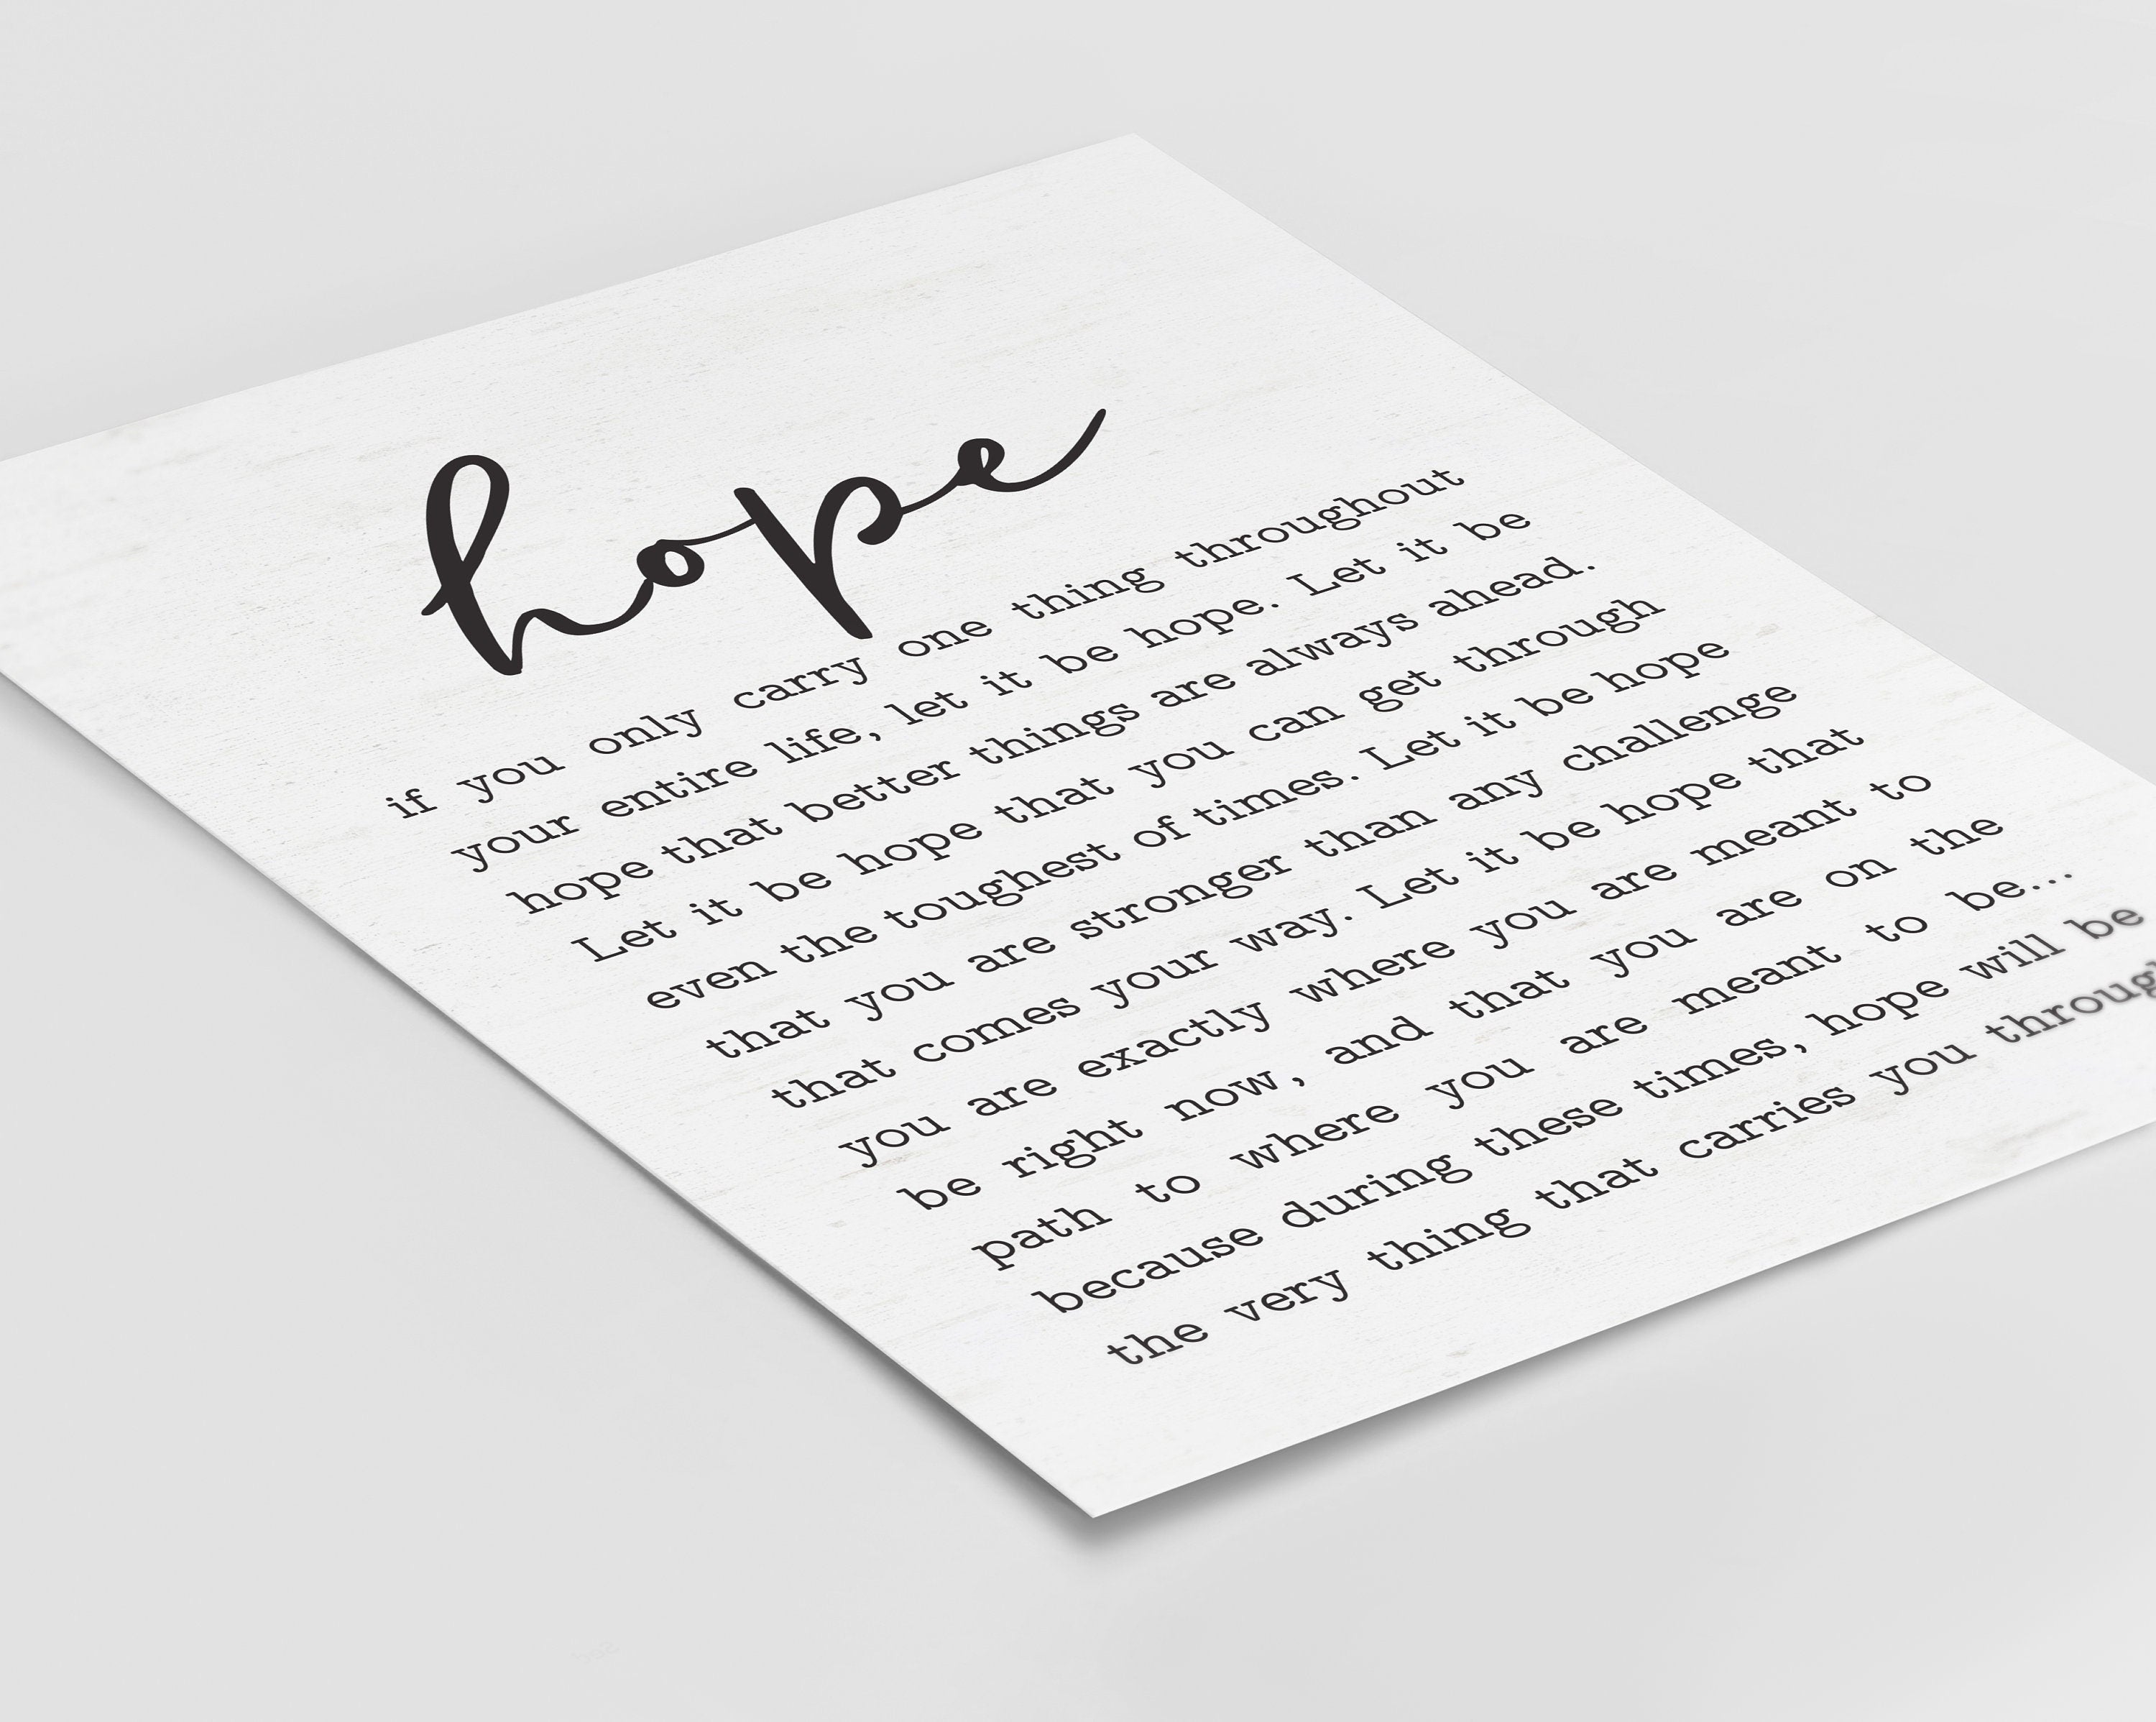 hope
if you only carry one thing throughout
your entire life, let it be hope. Let it be
hope that better things are always ahead.
Let it be hope that you can get through
even the toughest of times. Let it be hope
that you are stronger than any challenge
that comes your way. Let it be hope that
you are exactly where you are meant to
be right now, and that you are on the
path to where you are meant to be...
because during these times, hope will be
the very thing that carries you